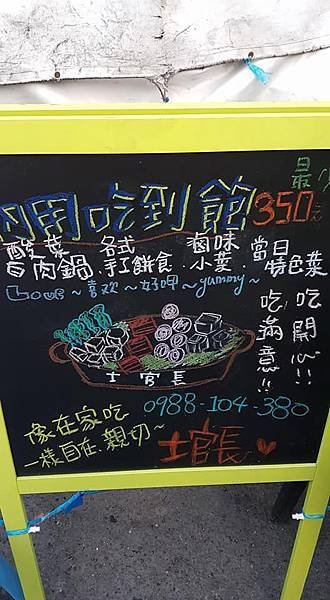 最
內用吃到飽350元
酸菜白肉鍋.各式手工餅餐.滷味小菜.當日特色菜
Love~喜欢~好呷~yummy~
吃開心!!
吃滿意!!
士官長
0988-104-380
像在家吃
一樣自在.親切~
士官長